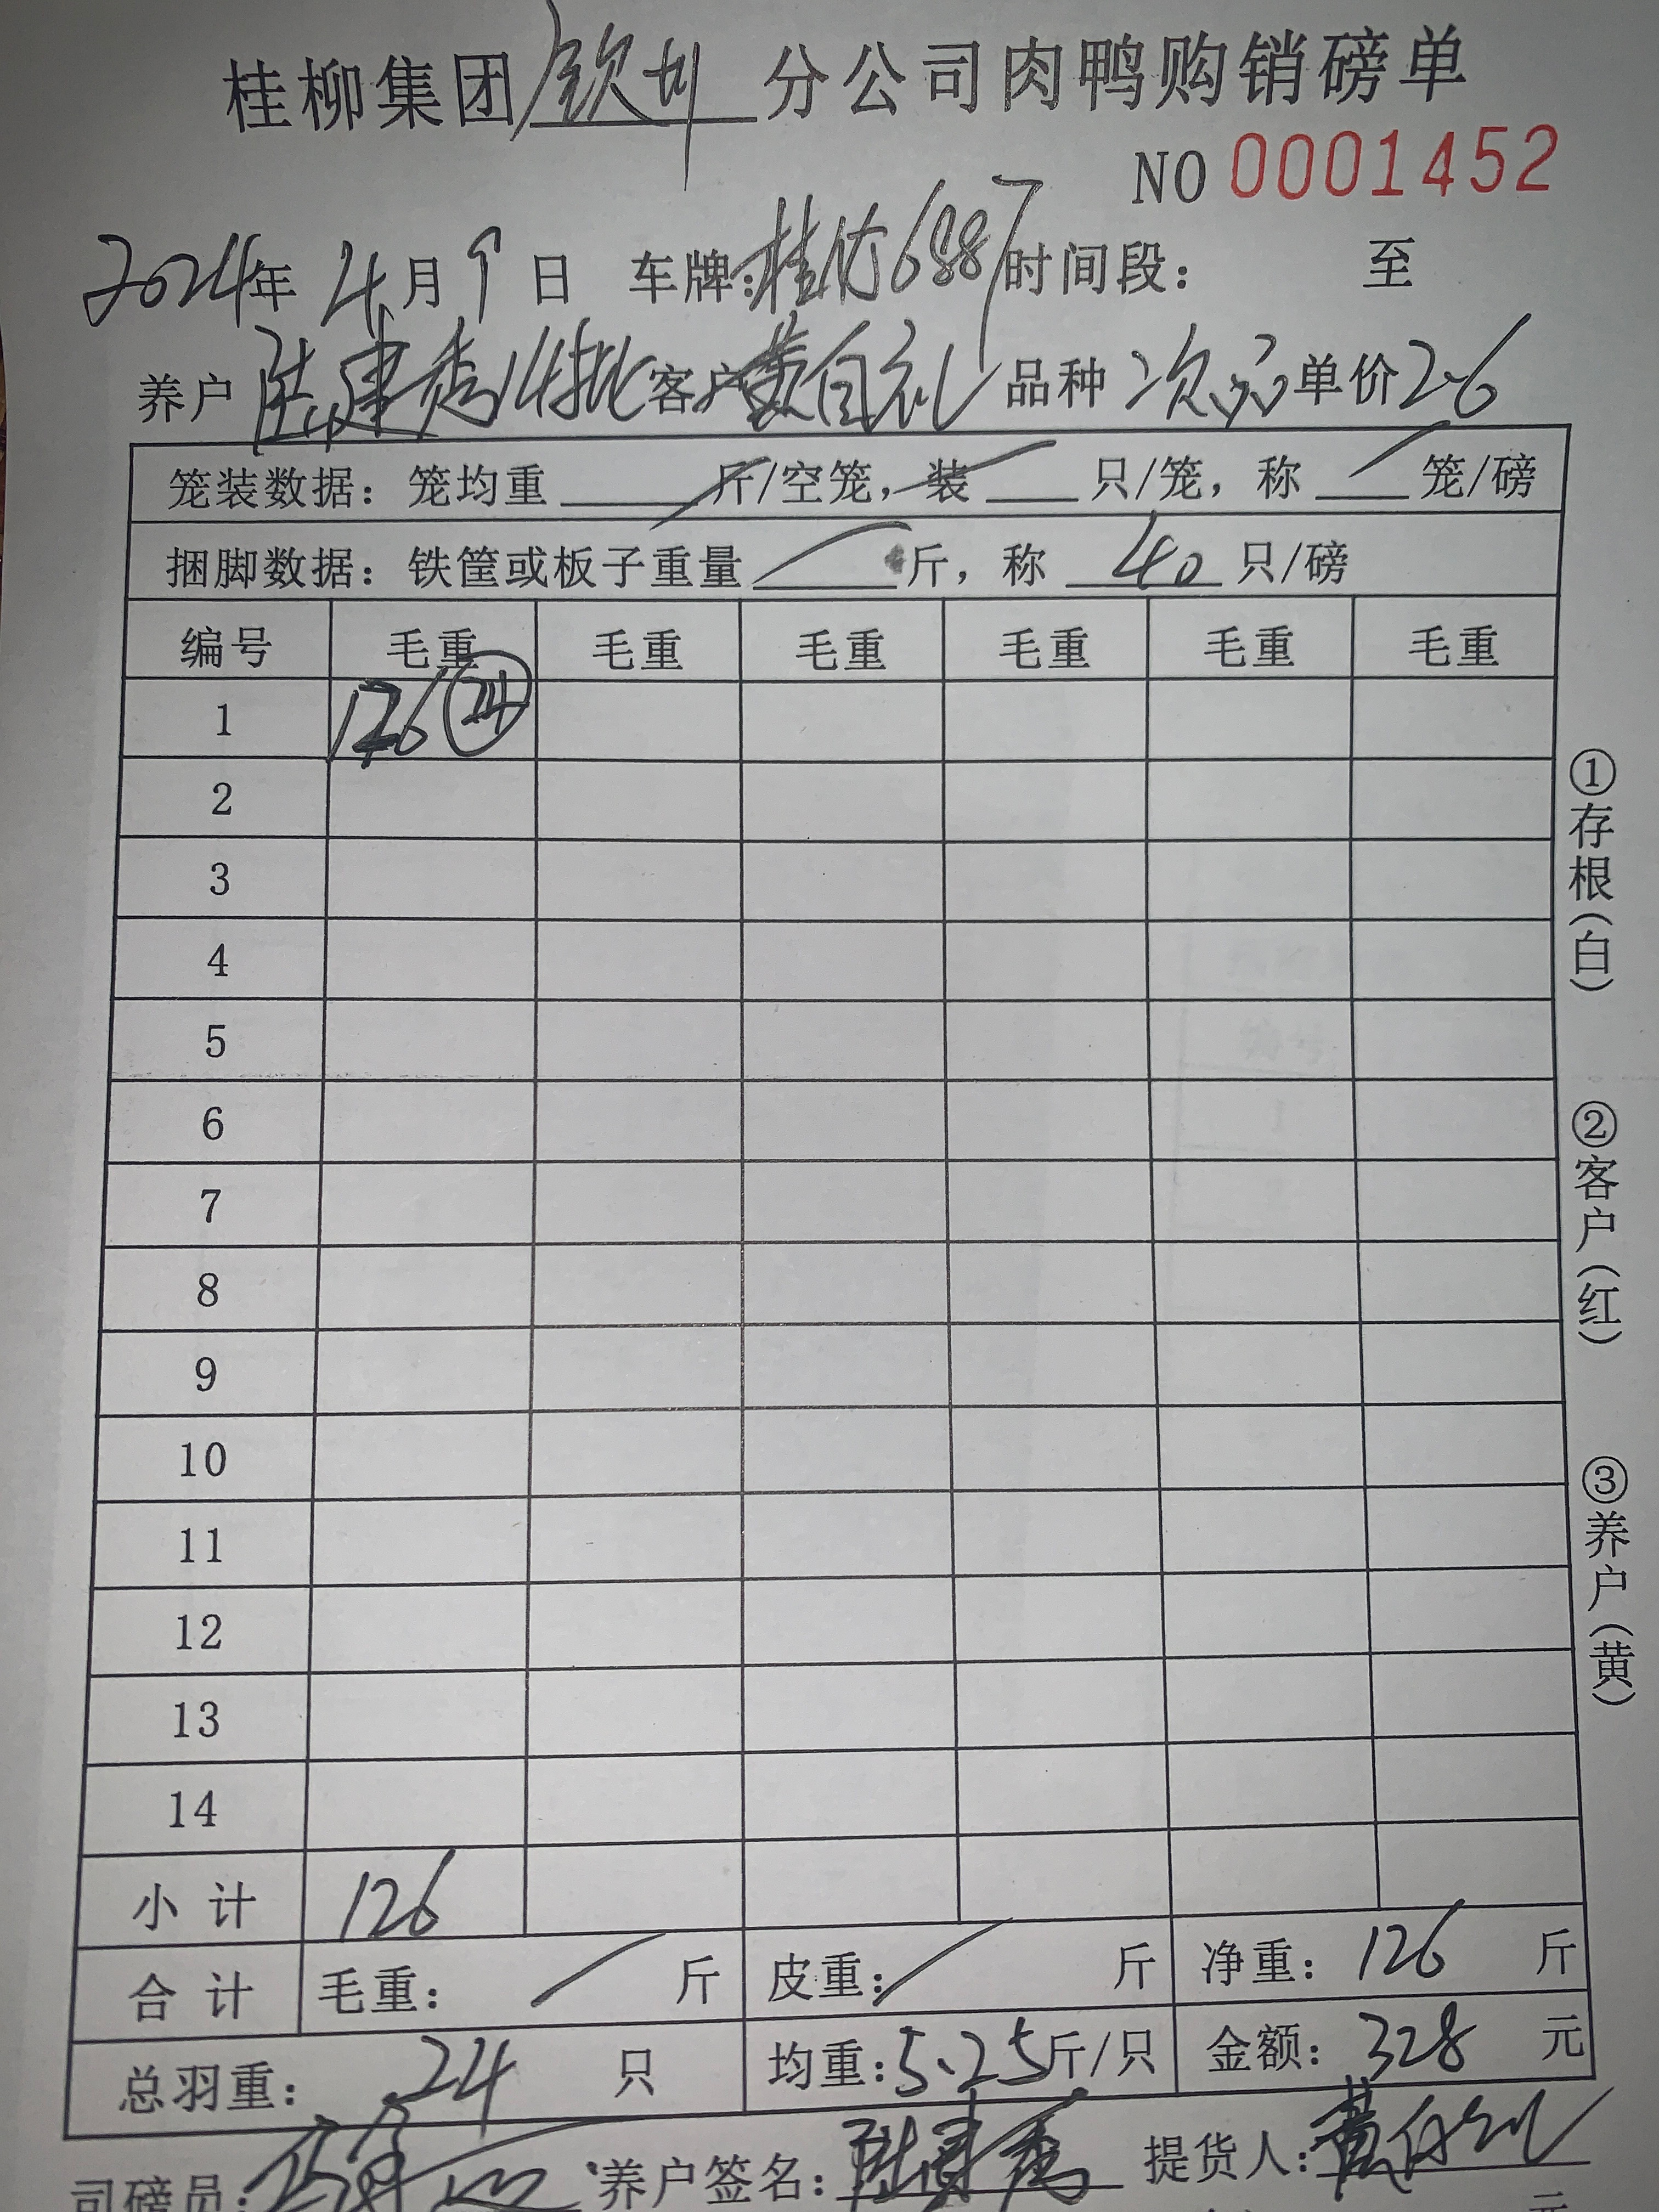 桂柳集团钦州分公司肉鸭购销磅单
NO 0001452
2024年4月9日 车牌:桂 6887 时间段: 至
养户 陆建秀14批 客户 黄自礼 品种 次品 单价 2.6
笼装数据: 笼均重 斤/空笼, 装 只/笼, 称 笼/磅
捆脚数据: 铁筐或板子重量 斤, 称 40 只/磅
编号 毛重 毛重 毛重 毛重 毛重 毛重
1 126 24
2
3
4
5
6
7
8
9
10
11
12
13
14
小计 126
合计 毛重: 斤 皮重: 斤 净重: 126 斤
总羽重: 24 只 均重: 5.25斤/只 金额: 328 元
司磅员: 养户签名: 陆建秀 提货人: 黄自礼
元
①存根(白)
②客户(红)
③养户(黄)